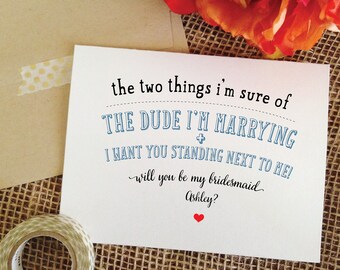 the two things i'm sure of
THE DUDE I'M MARRYING
+
I WANT YOU STANDING NEXT TO ME!
will you be my bridesmaid
Ashley?